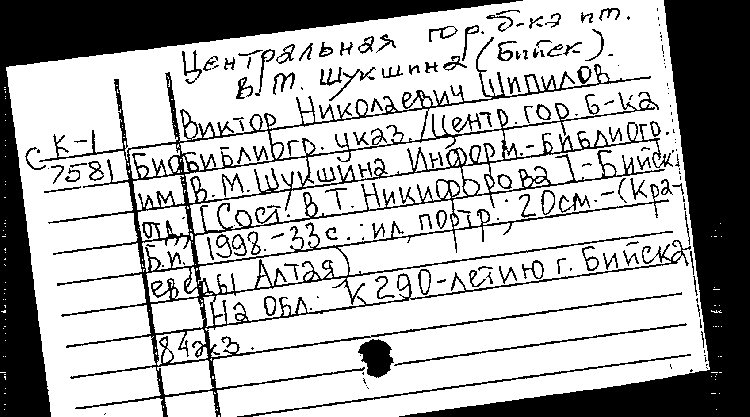 Центральная гор. б-ка им.
В. М. Шукшина (Бийск).
Виктор Николаевич Шипилов.
С К-1
7581
Биобиблиогр. указ. / Центр. гор. б-ка
им. В. М. Шукшина. Информ.-библиогр.
отд.; [Сост. В. Т. Никифорова]. - Бийск:
Б.и., 1998. - 33 с.: ил, портр.; 20 см. - (Кра-
еведы Алтая).
На обл.: К 290-летию г. Бийска
84 экз.